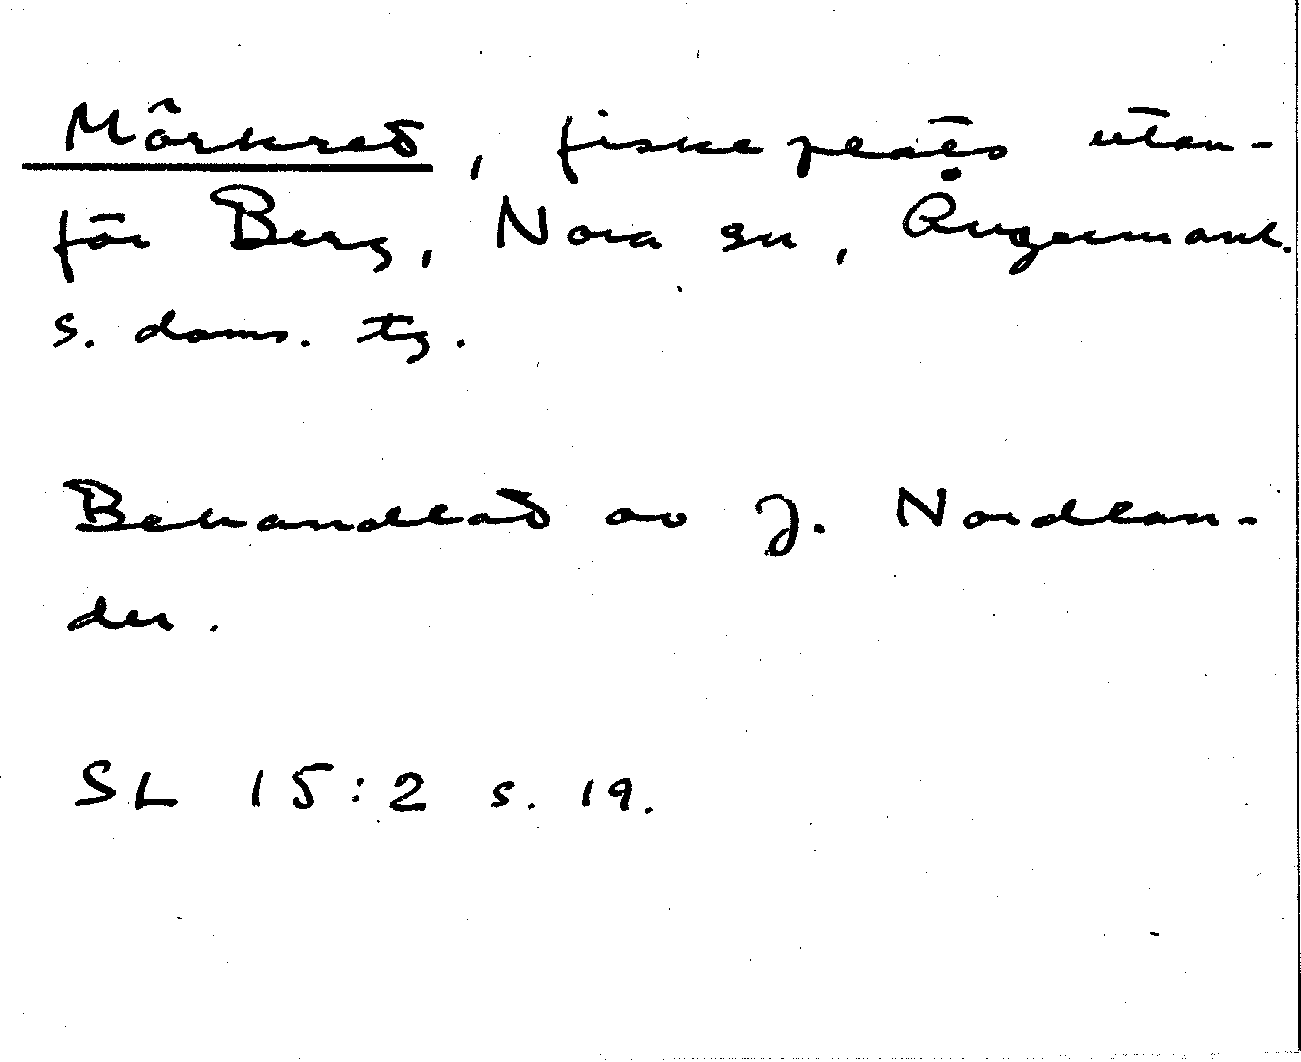 Mörkret, fiskeplats utan-
för Berg, Nora sn, Ångermanl.
s. doms. tg.
Behandlat av J. Nordlan-
der.
SL 15:2 s. 19.